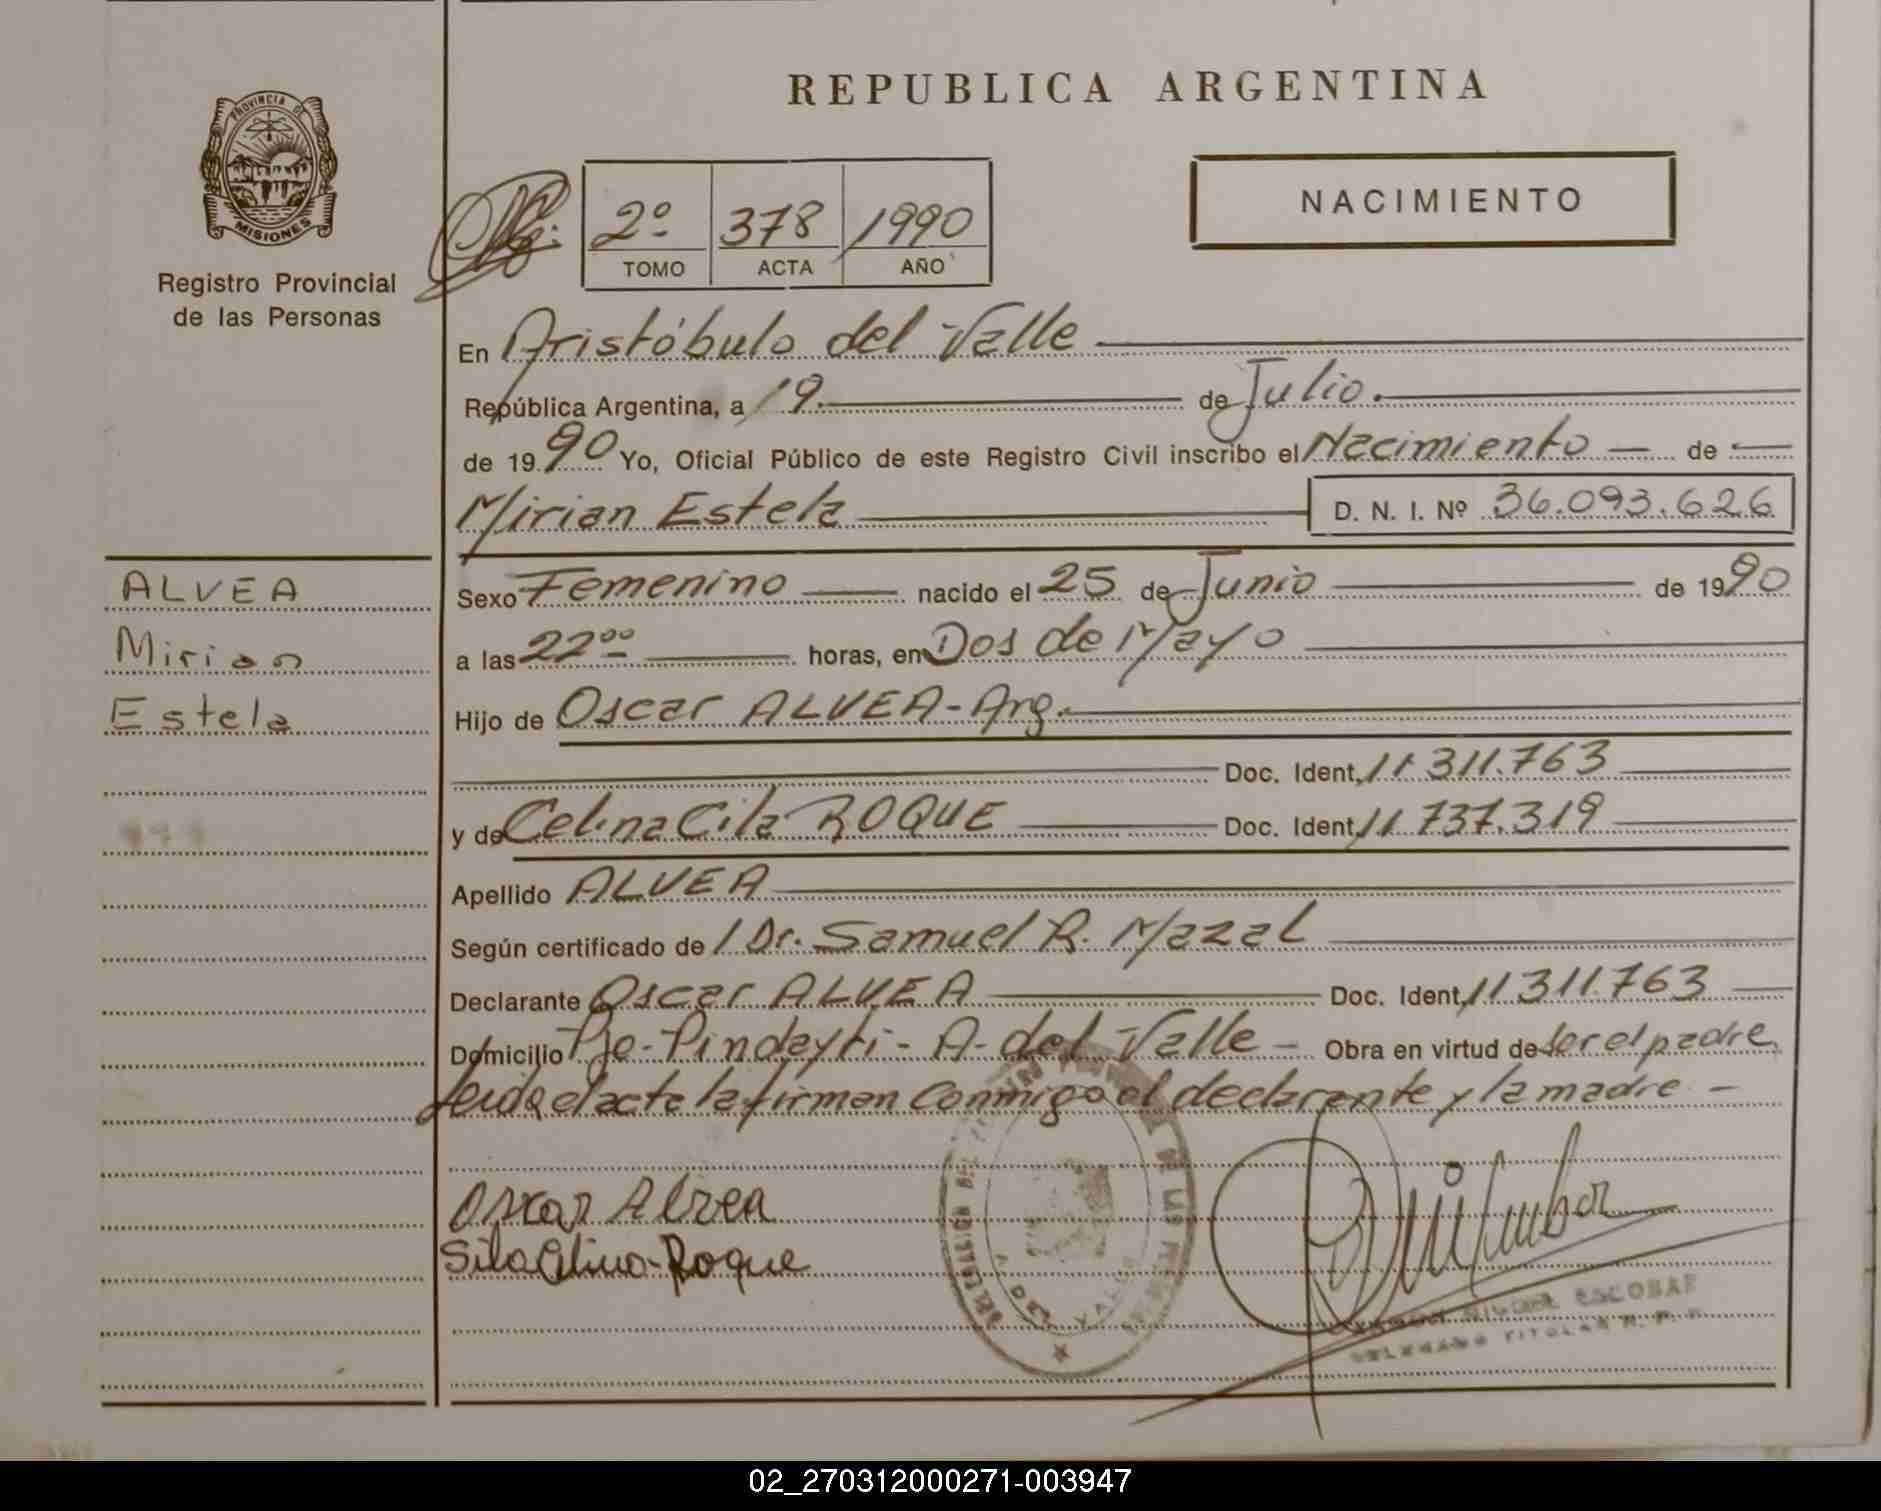 REPUBLICA ARGENTINA
PROVINCIA DE
MISIONES
Registro Provincial
de las Personas
NACIMIENTO
2º 378 1990
TOMO ACTA AÑO
En Aristóbulo del Valle
República Argentina, a 19 de Julio.
de 1990 Yo, Oficial Público de este Registro Civil inscribo el Nacimiento — de —
Mirian Estela D. N. I. Nº 36.093.626
ALVEA
Mirian
Estela
Sexo Femenino nacido el 25 de Junio de 1990
a las 22ºº horas, en Dos de Mayo
Hijo de Oscar ALVEA-Arg.
Doc. Ident. 11.311.763
y de Celina Cila ROQUE Doc. Ident. 11.737.319
Apellido ALVEA
Según certificado de / Dr. Samuel R. Mazal
Declarante Oscar ALVEA Doc. Ident. 11311.763
Domicilio Pje-Pindayti- A- del Valle - Obra en virtud de ser el padre
leida el acta la firman conmigo el declarante y la madre -
Oscar Alvea
Sila Celina-Roque
MIGUEL ESCOBAR
DELEGADO TITULAR R. P. P.
02_270312000271-003947